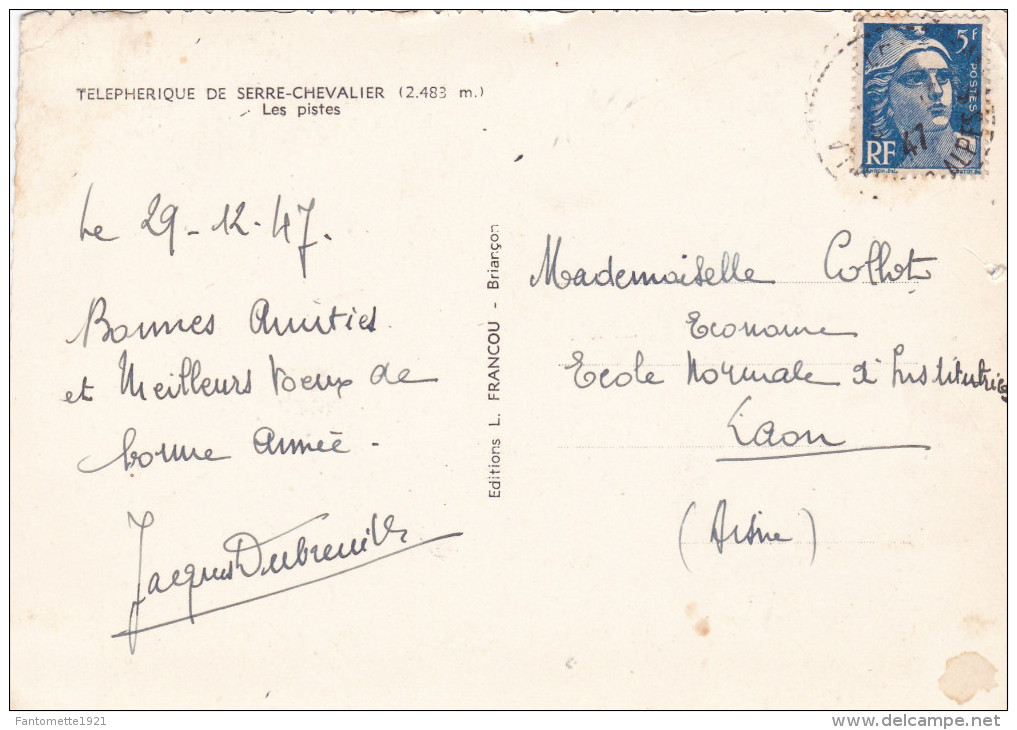 TELEPHERIQUE DE SERRE-CHEVALIER (2.483 m.)
Les pistes
Le 29-12-47.
Bonnes Amitiés
et Meilleurs Voeux de
bonne Année-
Jacques Dubreuille
Editions L. FRANCOU - Briançon
5F
POSTES
RF
47
ALPES
Mademoiselle Collot
Econome
Ecole Normale d'Institutrices
Laon
(Aisne)
Fantomette1921
www.delcampe.net